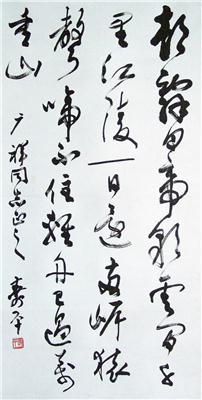 朝辭白帝彩雲間千
里江陵一日還兩岸猿
聲啼不住輕舟已過萬
重山
广祥同志正之
壽平